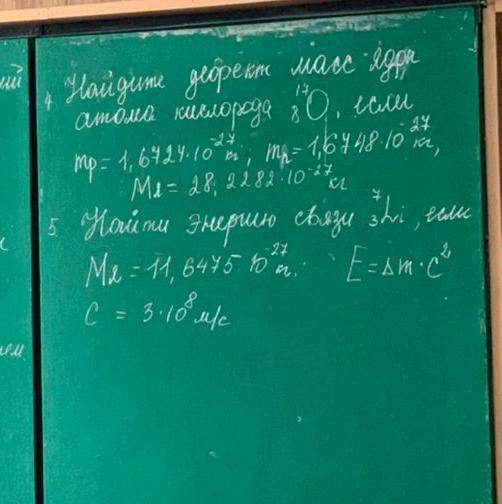 ий
4 Найдите дефект масс ядра
атома кислорода ¹⁷₈O, если
mp = 1,6724·10⁻²⁷ кг; mn = 1,6748·10⁻²⁷ кг,
Mя = 28,2282·10⁻²⁷ кг
5 Найти энергию связи ⁷₃Li, если
Mя = 11,6475·10⁻²⁷ кг. E = Δm·c²
C = 3·10⁸ м/с